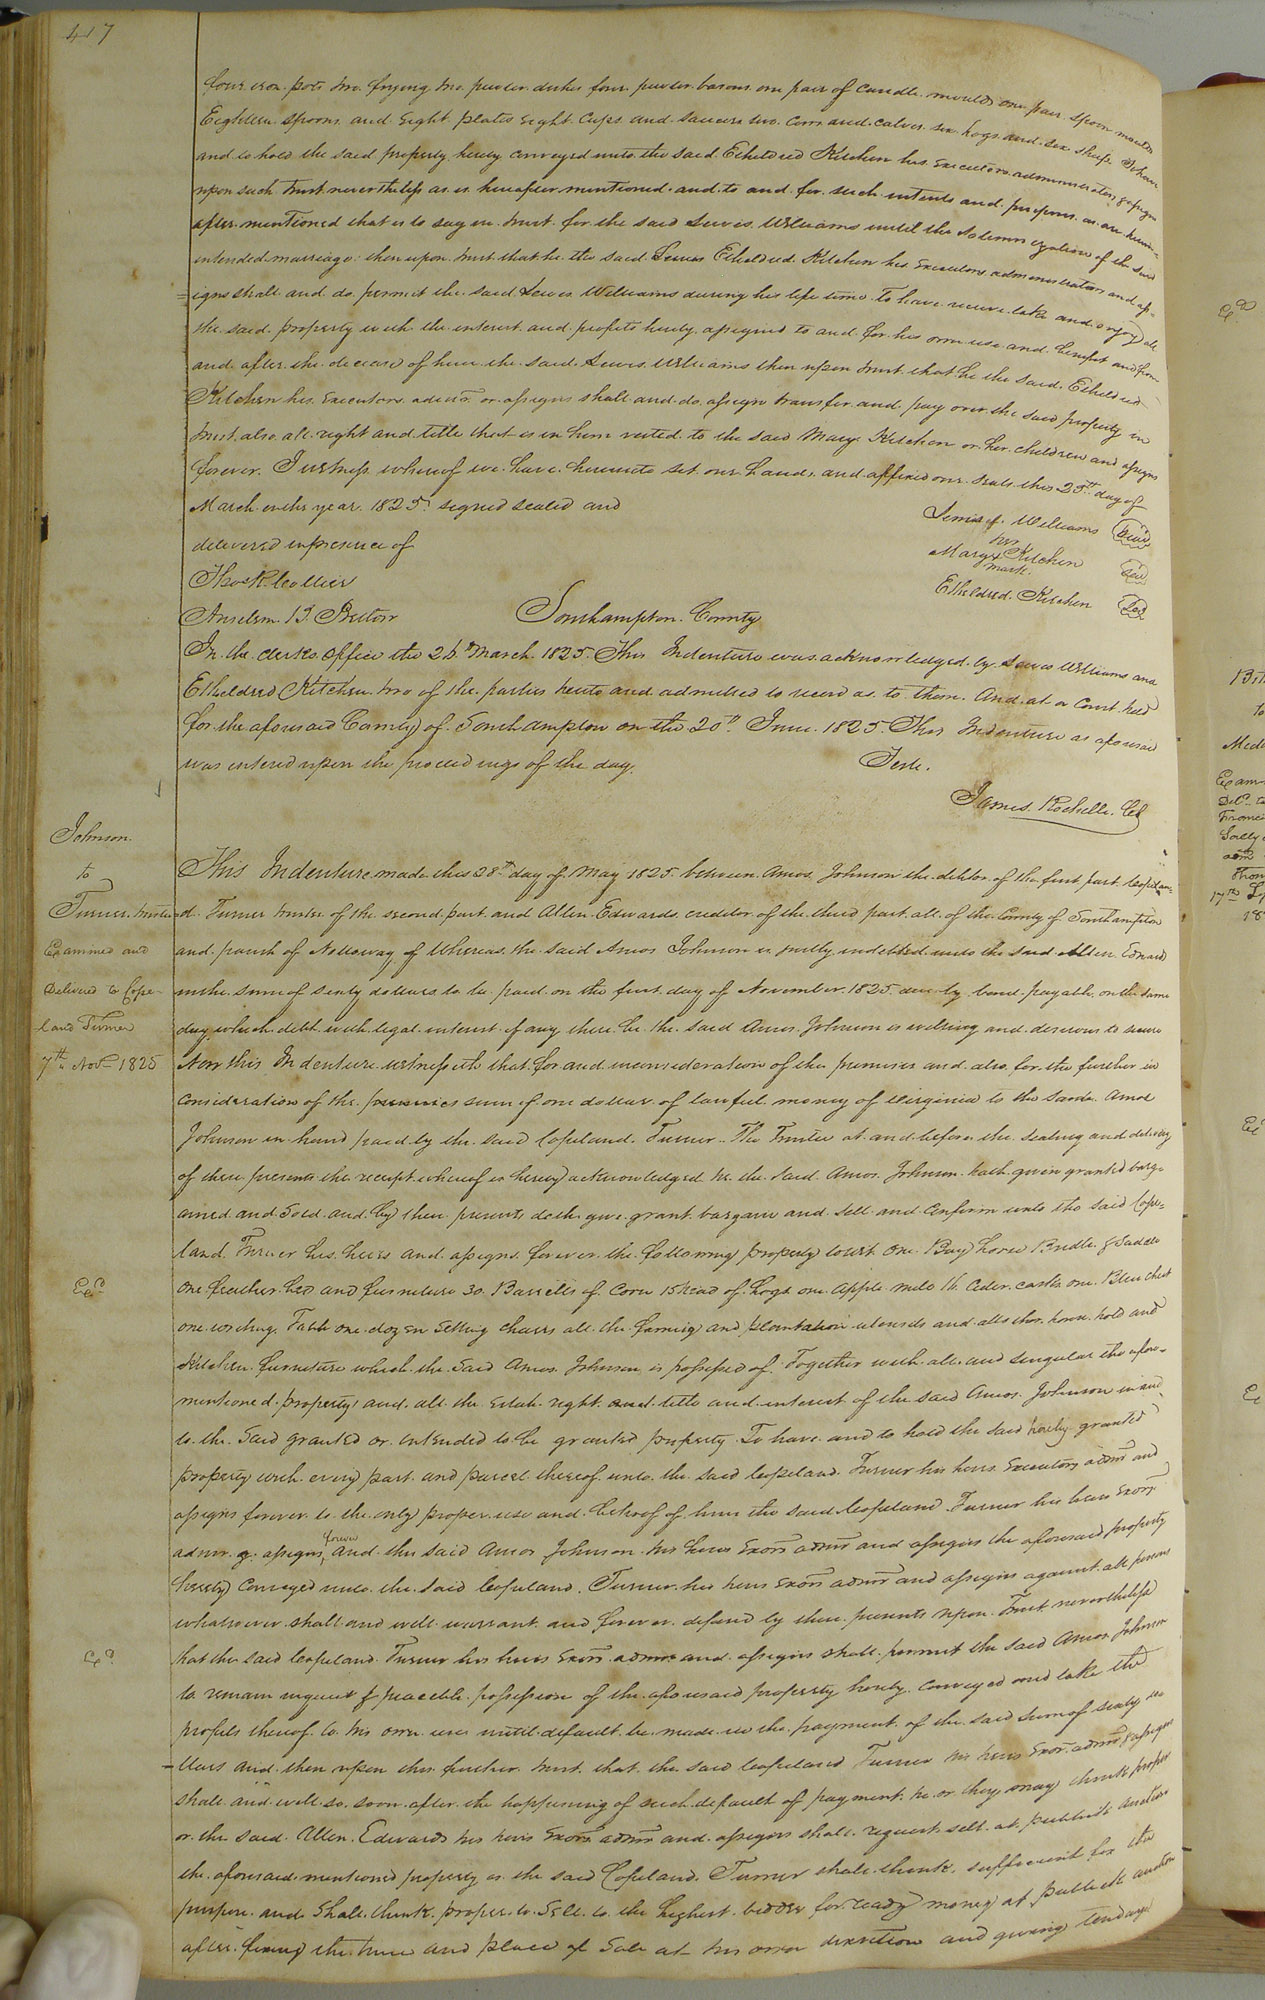 417
four iron pots two frying two pewter dishes four pewter basons one pair of Candle moulds one pair spoon moulds
Eighteen spoons and Eight plates Eight Cups and saucers two Cows and calves six hogs and six sheep To have
and to hold the said property hereby conveyed unto the said Etheldred Kitchen his executors administrators & assigns
upon such trust nevertheless as is hereafter mentioned and to and for such intents and purposes as are herein
after mentioned that is to say in trust for the said Lewis Williams until the solemnization of the said
intended marriage then upon trust that he the said Lewis Etheldred Kitchen his Executors administrators and as-
signs shall and do permit the said Lewis Williams during his life time To have receive take and enjoy all
the said property with the interest and profits hereby assigned to and for his own use and benefit and from
and after the decease of him the said Lewis Williams then upon trust that he the said Etheldred
Kitchen his Executors admrs or assigns shall and do assign transfer and pay over the said property in
trust also all right and title that is in him vested to the said Mary Kitchen or her children and assigns
forever In witness whereof we have hereunto set our hands and affixed our seals this 25th day of
March in the year 1825 signed sealed and
delivered in presence of
Lewis Williams seal
her
Mary x Kitchen seal
mark
Etheldred Kitchen seal
Collier
Anselm B.
Southampton County
In the clerks office the 26th March 1825 This Indenture was acknowledged by Lewis Williams and
Etheldred Kitchen two of the parties hereto and admitted to record as to them And at a Court held
for the aforesaid County of Southampton on the 20th June 1825 This Indenture as aforesaid
was entered upon the proceedings of the day.
Teste.
James Rochelle Cl
Johnson
to
Turner trustee
Examined and
Delivered to Cope-
land Turner
7th Nov 1825
This Indenture made this 28th day of May 1825 between Amos Johnson the debtor of the first part Copelan-
d Turner trustee of the second part and Allen Edwards creditor of the third part all of the County of Southampton
and parish of Nottoway Whereas the said Amos Johnson is justly indebted unto the said Allen Edward
in the sum of sixty dollars to be paid on the first day of November 1825 due by bond payable on the same
day which debt with legal interest if any there be the said Amos Johnson is willing and desirous to secure
Now this Indenture witnesseth that for and in consideration of the premises and also for the further in
consideration of the premises sum of one dollar of lawful money of Virginia to the said Amos
Johnson in hand paid by the said Copeland Turner The Trustee at and before the sealing and delivery
of these presents the receipt whereof is hereby acknowledged he the said Amos Johnson hath given granted barg-
ained and sold and by these presents doth give grant bargain and sell and Confirm unto the said Cope-
land Turner his heirs and assigns forever the following property towit One Bay horse Bridle & Saddle
one feather bed and furniture 30 Barrells of Corn 15 head of hogs one apple mill 16 Ceder casks one Blue chest
one dozen Setting chairs all the farming and plantation utensils and all other house hold and
Kitchen furniture which the said Amos Johnson is possessed of Together with all and singular the afore-
mentioned property and all the Estate right and title and interest of the said Amos Johnson in and
to the said granted or intended to be granted property To have and to hold the said hereby granted
property with every part and parcel thereof unto the said Copeland Turner his heirs Executors admrs and
assigns forever to the only proper use and behoof of him the said Copeland Turner his heirs Exors
admrs & assigns forever and the said Amos Johnson his heirs Exors admrs and assigns the aforesaid property
hereby Conveyed unto the said Copeland Turner his heirs Exors admrs and assigns against all persons
whatsoever shall and will warrant and forever defend by these presents upon Trust nevertheless
that the said Copeland Turner his heirs Exors admrs and assigns shall permit the said Amos Johnson
to remain in quiet & peaceble possession of the aforesaid property hereby conveyed and take the
profits thereof to his own use until default be made in the payment of the said sum of sixty do
llars and then upon this further trust that the said Copeland Turner his heirs Exors admrs & assigns
shall and will so soon after the happening of such default of payment he or they may think proper
or the said Allen Edwards his heirs Exors admrs and assigns shall request sell at publick auction
the aforesaid mentioned property as the said Copeland Turner shall think sufficient for the
purpose and shall think proper to Sell to the highest bidder for ready money at publick auction
after fixing the time and place of Sale at his own discretion and giving ten days